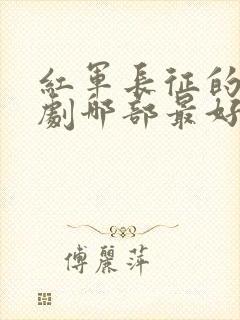 紅軍長征的
劇那部最好
傅麗萍